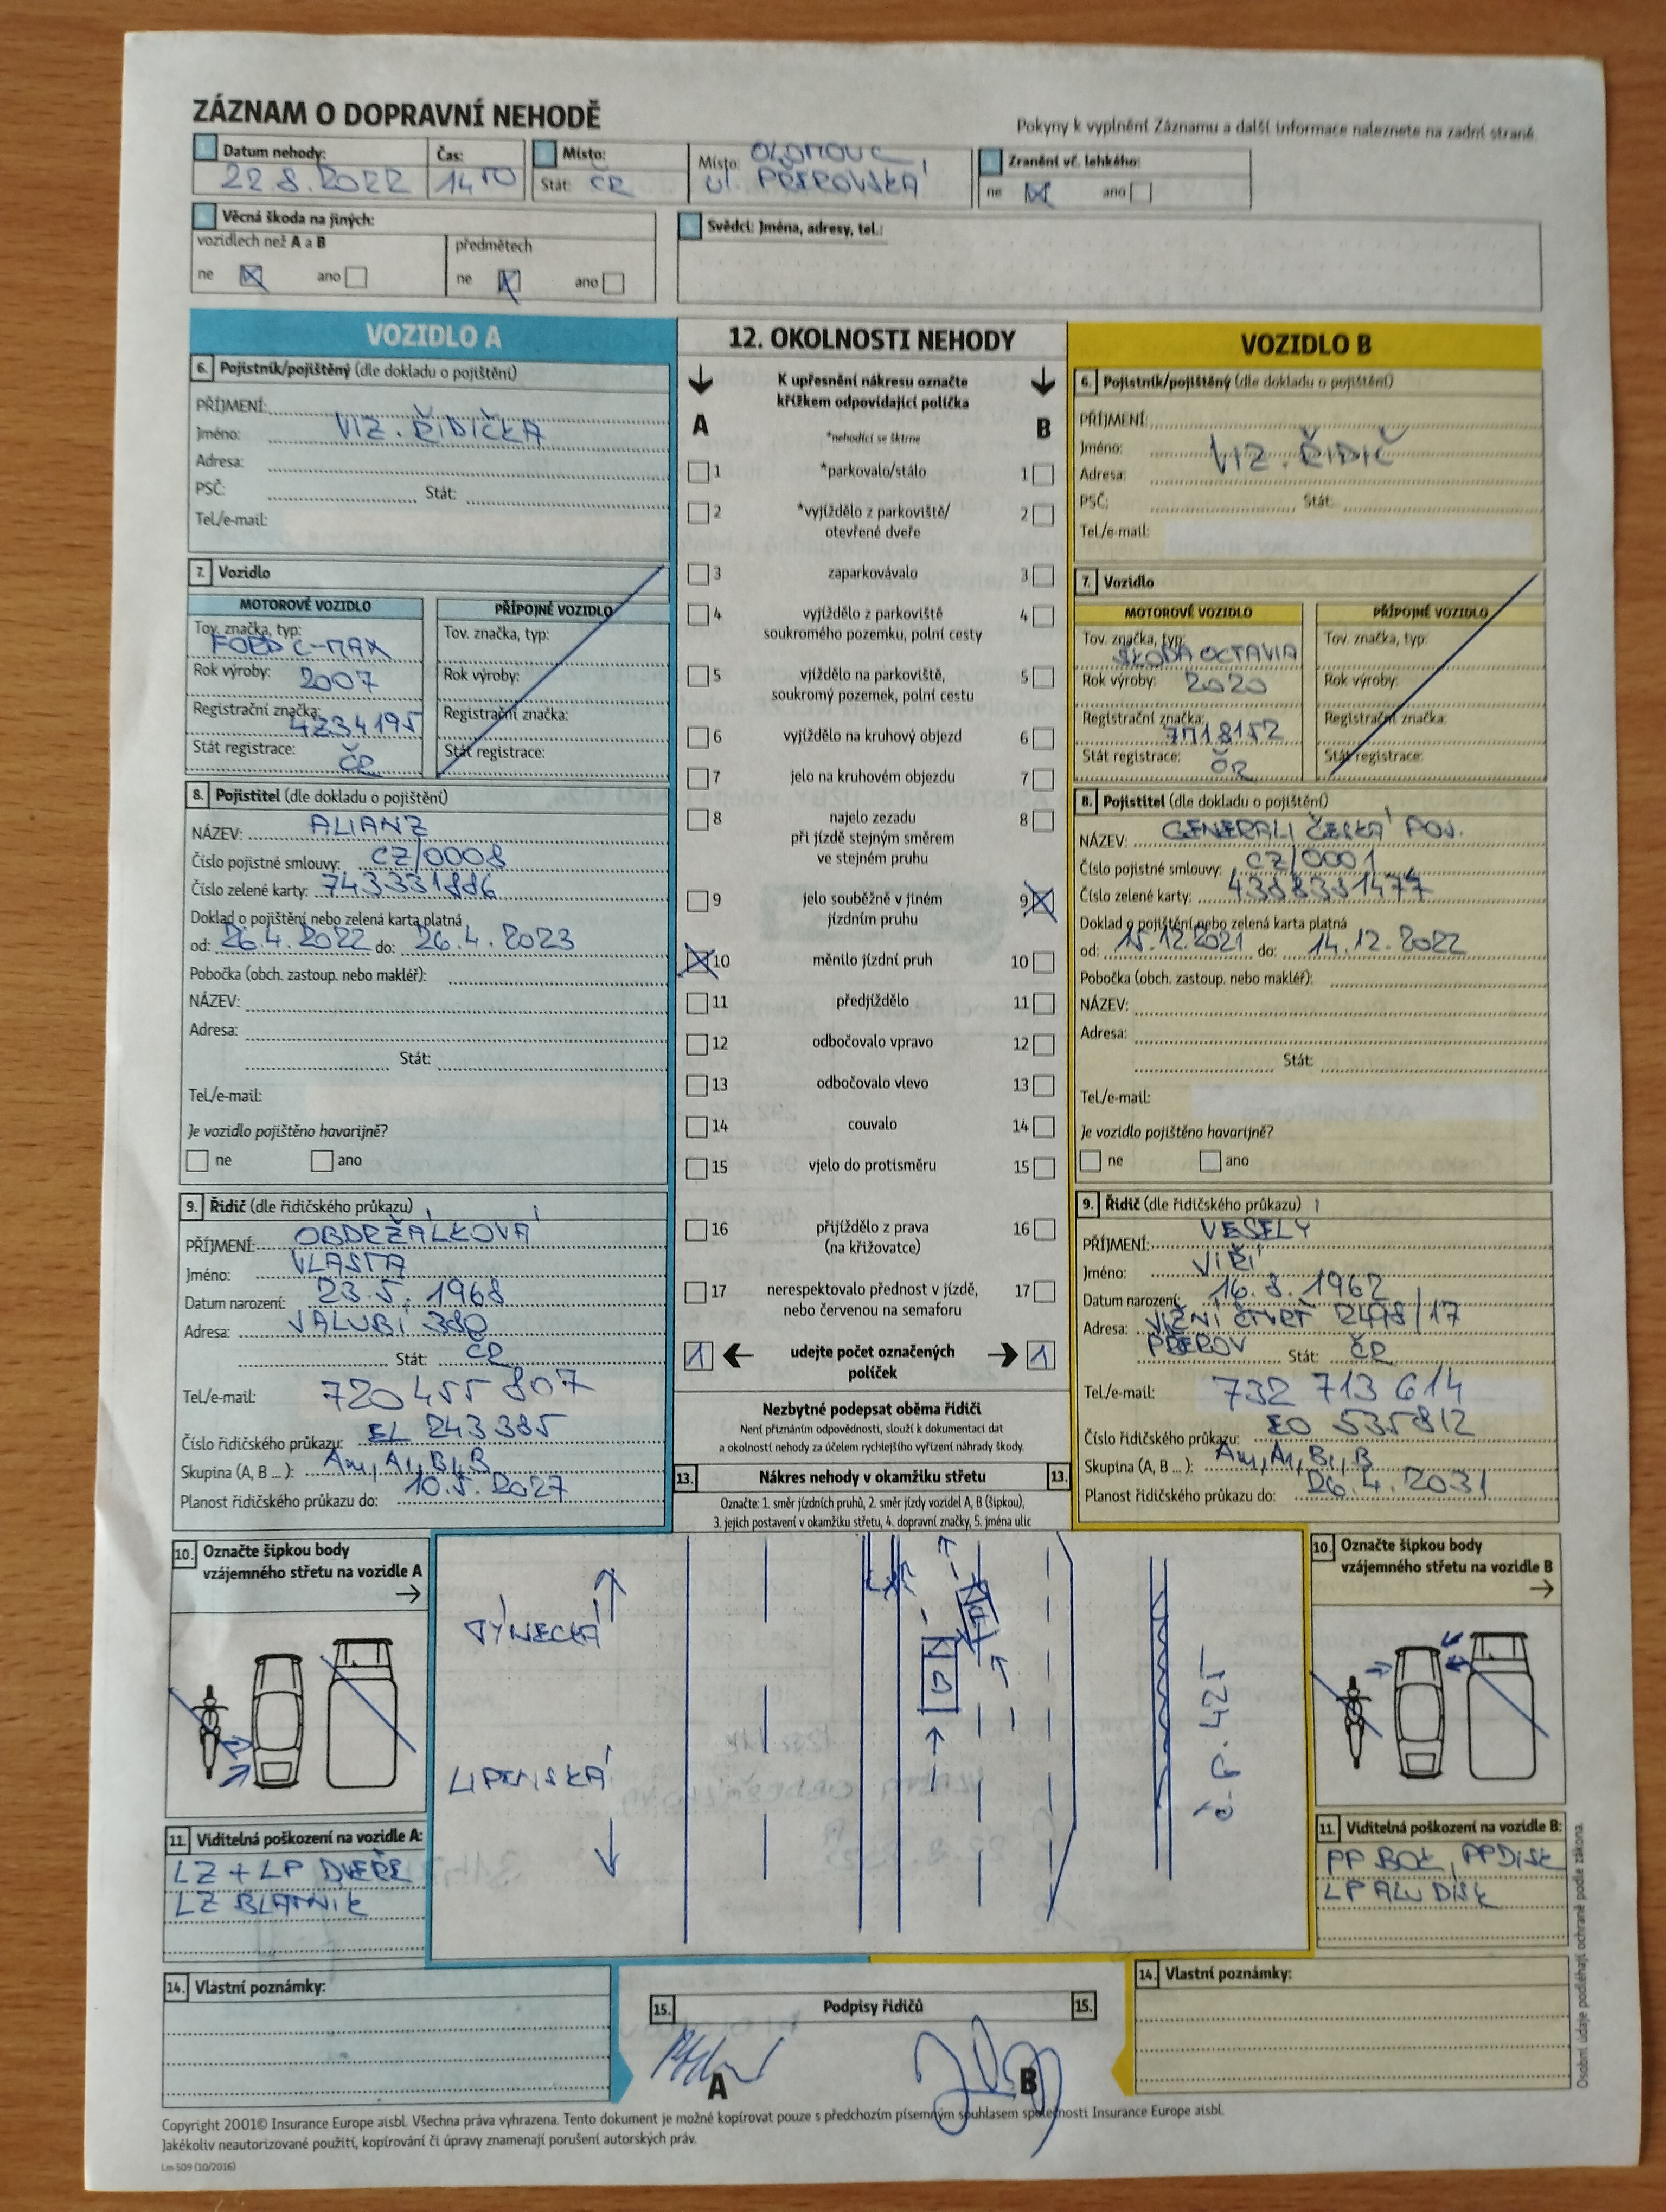 ZÁZNAM O DOPRAVNÍ NEHODĚ
Pokyny k vyplnění Záznamu a další informace naleznete na zadní straně.
Datum nehody: 22.8.2022
Čas:
Místo:
Stát: ČR
Místo: OLOMOUC
ul. PŘEROVSKÁ
Zranění vč. lehkého:
ne ano
Věcná škoda na jiných:
vozidlech než A a B
ne ano
předmětech
ne ano
Svědci: Jména, adresy, tel.:
VOZIDLO A
6. Pojistník/pojištěný (dle dokladu o pojištění)
PŘÍJMENÍ:
Jméno: VIZ. ŘIDIČKA
Adresa:
PSČ: Stát:
Tel./e-mail:
7. Vozidlo
MOTOROVÉ VOZIDLO
Tov. značka, typ:
FORD C-MAX
Rok výroby: 2007
Registrační značka:
4Z34195
Stát registrace:
ČR
PŘÍPOJNÉ VOZIDLO
Tov. značka, typ:
Rok výroby:
Registrační značka:
Stát registrace:
8. Pojistitel (dle dokladu o pojištění)
NÁZEV: ALIANZ
Číslo pojistné smlouvy: CZ/0008
Číslo zelené karty: 743331886
Doklad o pojištění nebo zelená karta platná
od: 26.4.2022 do: 26.4.2023
Pobočka (obch. zastoup. nebo makléř):
NÁZEV:
Adresa:
Stát:
Tel./e-mail:
Je vozidlo pojištěno havarijně?
ne ano
9. Řidič (dle řidičského průkazu)
PŘÍJMENÍ: OBDRŽÁLKOVÁ
Jméno: VLASTA
Datum narození: 23.5.1968
Adresa: 380
Stát: ČR
Tel./e-mail: 720 455 807
Číslo řidičského průkazu: EL 243385
Skupina (A, B ...): AM, A1, B1, B
Planost řidičského průkazu do: 10.5.2027
12. OKOLNOSTI NEHODY
K upřesnění nákresu označte
křížkem odpovídající políčka
A B
*nehodící se škrtne
1 *parkovalo/stálo 1
2 *vyjíždělo z parkoviště/ 2
otevřené dveře
3 zaparkovávalo 3
4 vyjíždělo z parkoviště 4
soukromého pozemku, polní cesty
5 vjíždělo na parkoviště, 5
soukromý pozemek, polní cestu
6 vyjíždělo na kruhový objezd 6
7 jelo na kruhovém objezdu 7
8 najelo zezadu 8
při jízdě stejným směrem
ve stejném pruhu
9 jelo souběžně v jiném 9
jízdním pruhu
10 měnilo jízdní pruh 10
11 předjíždělo 11
12 odbočovalo vpravo 12
13 odbočovalo vlevo 13
14 couvalo 14
15 vjelo do protisměru 15
16 přijíždělo z prava 16
(na křižovatce)
17 nerespektovalo přednost v jízdě, 17
nebo červenou na semaforu
1 udejte počet označených 1
políček
Nezbytné podepsat oběma řidiči
Není přiznáním odpovědnosti, slouží k dokumentaci dat
a okolností nehody za účelem rychlejšího vyřízení náhrady škody.
13. Nákres nehody v okamžiku střetu 13.
Označte: 1. směr jízdních pruhů, 2. směr jízdy vozidel A, B (šipkou),
3. jejich postavení v okamžiku střetu, 4. dopravní značky, 5. jména ulic
VOZIDLO B
6. Pojistník/pojištěný (dle dokladu o pojištění)
PŘÍJMENÍ:
Jméno: VIZ. ŘIDIČ
Adresa:
PSČ: Stát:
Tel./e-mail:
7. Vozidlo
MOTOROVÉ VOZIDLO
Tov. značka, typ:
ŠKODA OCTAVIA
Rok výroby: 2020
Registrační značka:
7M18152
Stát registrace:
ČR
PŘÍPOJNÉ VOZIDLO
Tov. značka, typ:
Rok výroby:
Registrační značka:
Stát registrace:
8. Pojistitel (dle dokladu o pojištění)
NÁZEV: GENERALI ČESKÁ POJ.
Číslo pojistné smlouvy: CZ/0001
Číslo zelené karty:
Doklad o pojištění nebo zelená karta platná
od: 15.12.2021 do: 14.12.2022
Pobočka (obch. zastoup. nebo makléř):
NÁZEV:
Adresa:
Stát:
Tel./e-mail:
Je vozidlo pojištěno havarijně?
ne ano
9. Řidič (dle řidičského průkazu)
PŘÍJMENÍ: VESELÝ
Jméno: JIŘÍ
Datum narození: 16.8.1962
Adresa: ČTVRŤ
PŘEROV Stát: ČR
Tel./e-mail: 732 713 614
Číslo řidičského průkazu: EO 535812
Skupina (A, B ...): AM, A1, B1, B
Planost řidičského průkazu do: 26.4.2031
10. Označte šipkou body
vzájemného střetu na vozidle A
TÝNECKÁ
LIPENSKÁ
A
B
10. Označte šipkou body
vzájemného střetu na vozidle B
11. Viditelná poškození na vozidle A:
LZ + LP DVEŘE
LZ BLATNIK
11. Viditelná poškození na vozidle B:
PP BOK, PP DISK
LP ALU DISK
14. Vlastní poznámky:
15. Podpisy řidičů 15.
A B
14. Vlastní poznámky:
Osobní údaje podléhají ochraně podle zákona.
Copyright 2001© Insurance Europe aisbl. Všechna práva vyhrazena. Tento dokument je možné kopírovat pouze s předchozím písemným souhlasem společnosti Insurance Europe aisbl.
Jakékoliv neautorizované použití, kopírování či úpravy znamenají porušení autorských práv.
Lm 509 (10/2016)